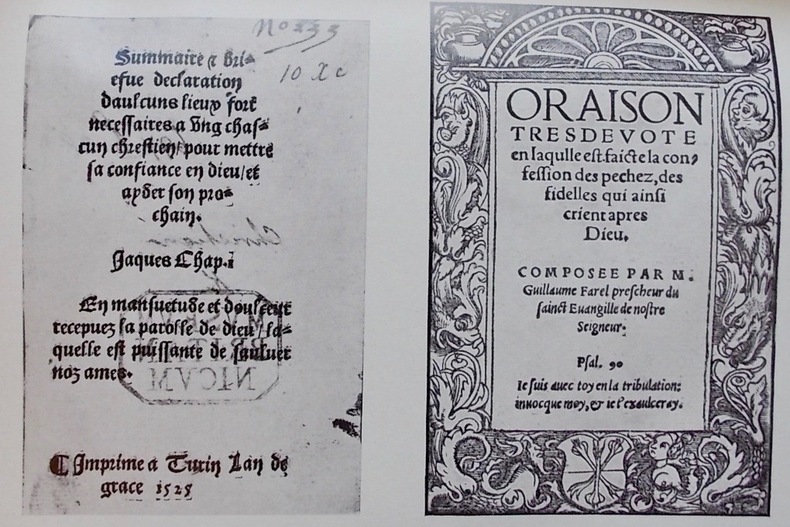 No 233
10 Xc
Summaire & bri-
efue declaration
daulcuns lieux fort
necessaires a vng chas-
cun chrestien/pour mettre
sa confiance en dieu/et
ayder son pro-
chain.
Jaques Chap.i
En mansuetude et doulceur
recepuez la parolle de dieu/la-
quelle est puissante de sauluer
noz ames.
BRITAN
NICVM
Imprime a Turin Lan de
grace 1525
ORAISON
TRESDEVOTE
en laqulle est faicte la con,
fession des pechez, des
fidelles qui ainsi
crient apres
Dieu.
COMPOSEE PAR M.
Guillaume Farel prescheur du
sainct Euangille de nostre
Seigneur.
Psal. 90
Ie suis auec toy en la tribulation:
inuocque moy, & ie t'exaulceray.